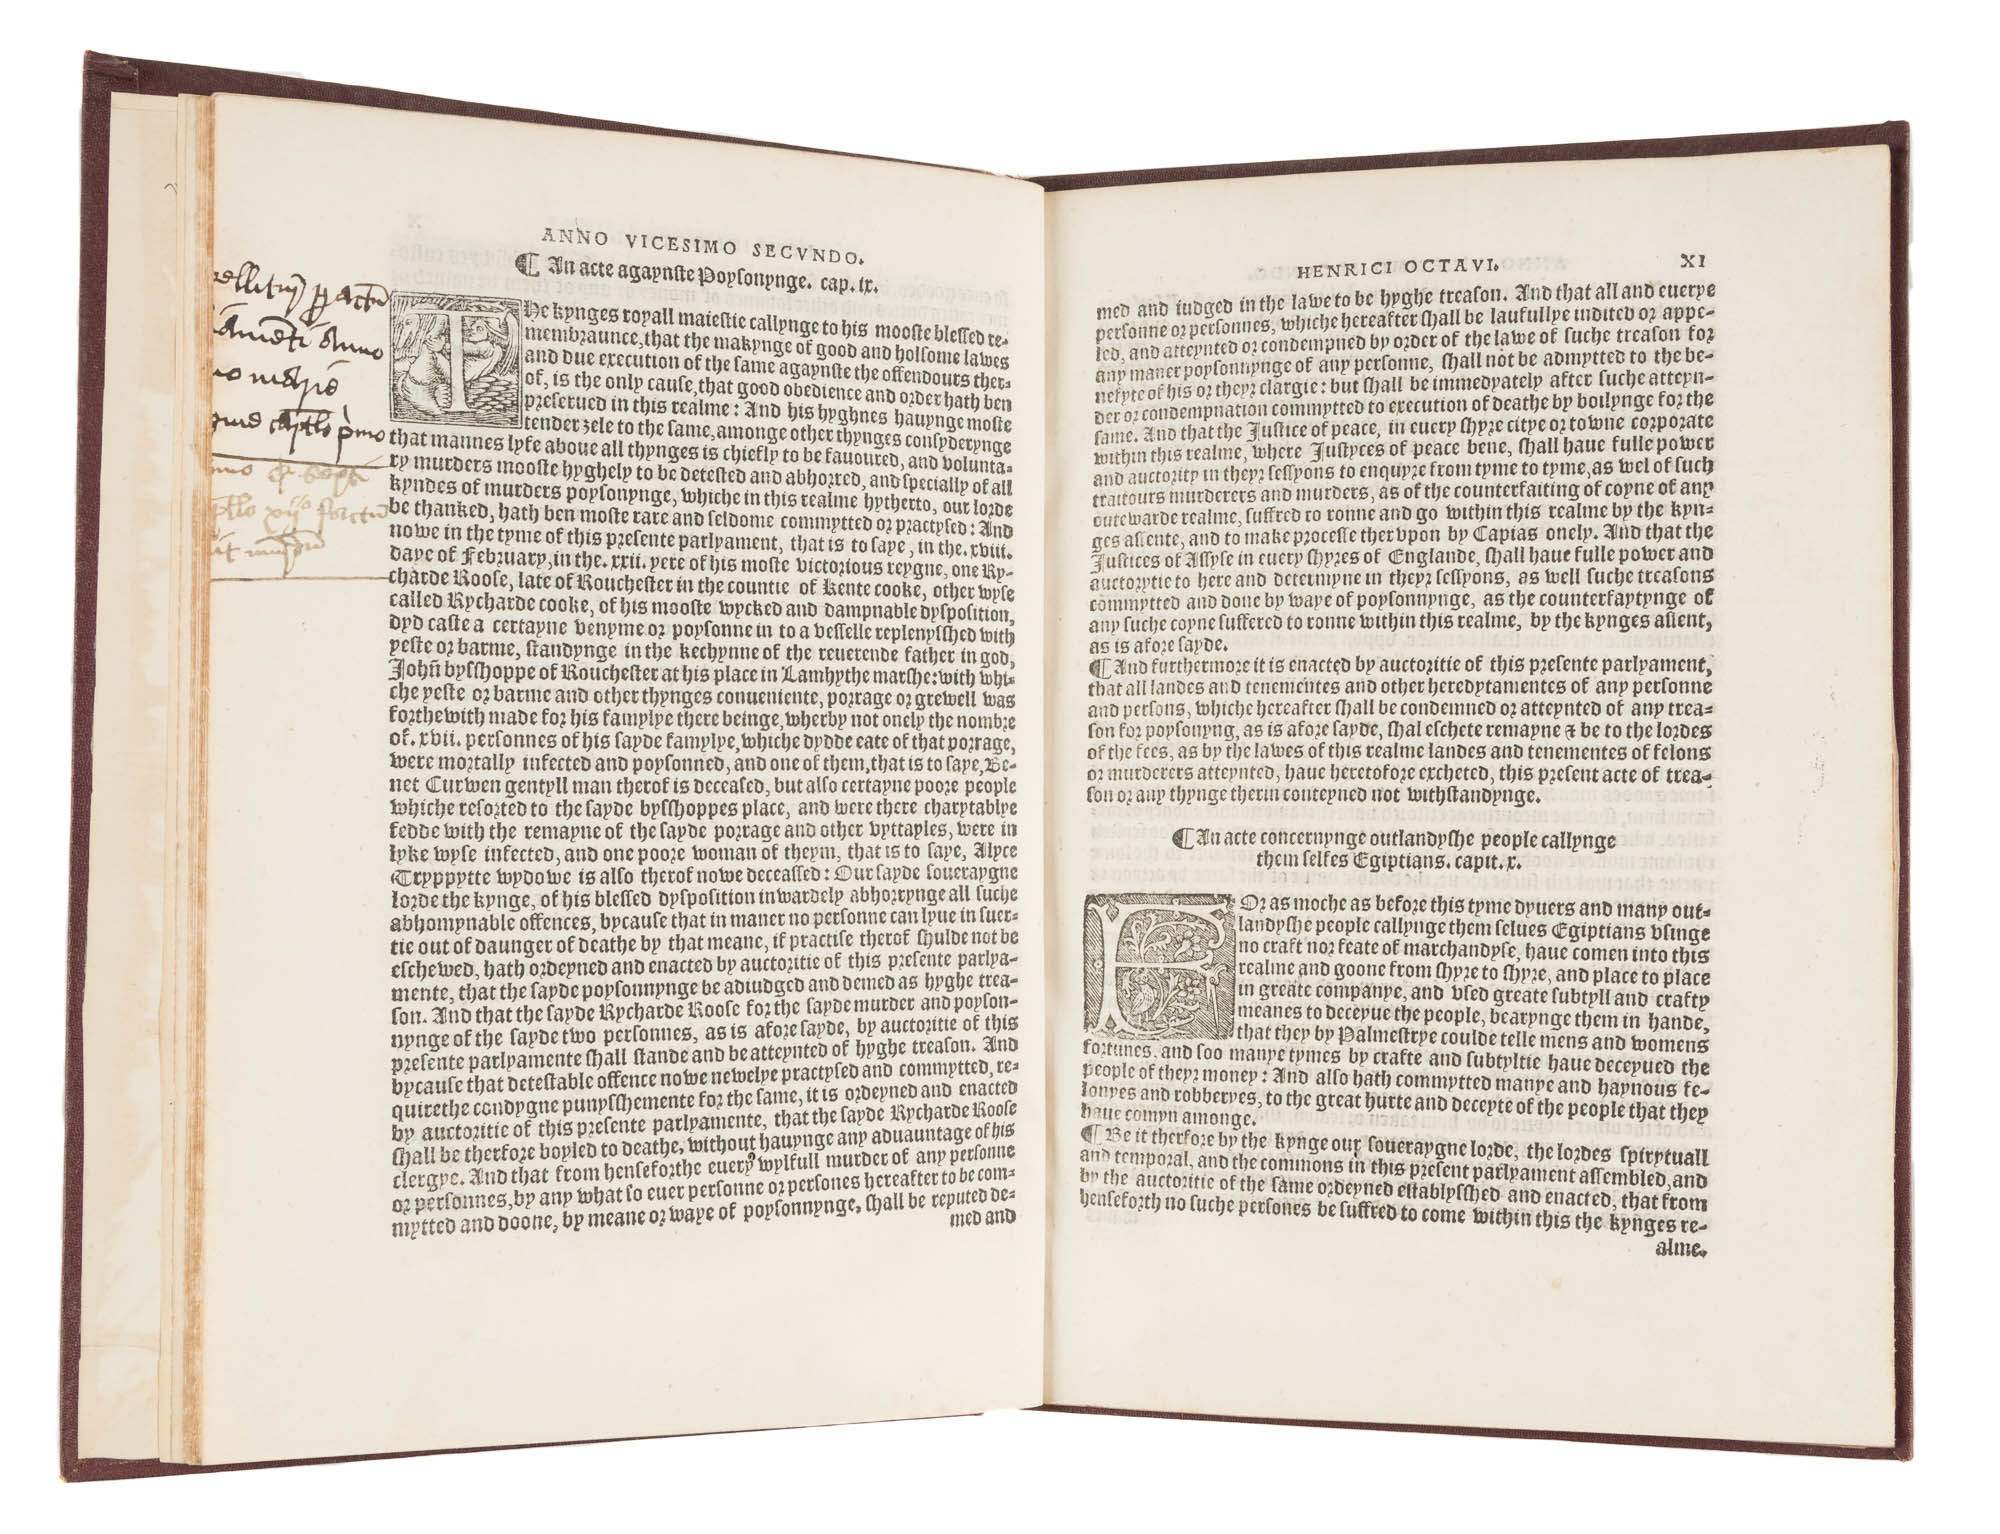 ANNO VICESIMO SECVNDO.
¶ An acte agaynste Poysonynge. cap. ix.
THe kynges royall maiestie callynge to his mooste blessed re-
membraunce, that the makynge of good and holsome lawes
and due execution of the same agaynste the offendours ther-
of, is the only cause, that good obedience and order hath ben
preserued in this realme: And his hyghnes hauynge moste
tender zele to the same, amonge other thynges consyderynge
that mannes lyfe aboue all thynges is chiefly to be fauoured, and volunta-
ry murders mooste hyghely to be detested and abhorred, and specially of all
kyndes of murders poysonynge, whiche in this realme hytherto, our lorde
be thanked, hath ben moste rare and seldome commytted or practysed: And
nowe in the tyme of this presente parlyament, that is to saye, in the .xviii.
daye of February, in the .xxii. yere of his moste victorious reygne, one Ry-
charde Roose, late of Rouchester in the countie of Kente cooke, other wyse
called Rycharde cooke, of his mooste wycked and dampnable dysposition,
dyd caste a certayne venyme or poysonne in to a vesselle replenysshed with
yeste or barme, standynge in the kechynne of the reuerende father in god,
Johñ bysshoppe of Rouchester at his place in Lamhythe marshe: with whi-
che yeste or barme and other thynges conueniente, porrage or grewell was
forthewith made for his famylye there beinge, wherby not onely the nombre
of .xvii. personnes of his sayde famylye, whiche dydde eate of that porrage,
were mortally infected and poysonned, and one of them, that is to saye, Be-
net Curwen gentyll man therof is deceased, but also certayne poore people
whiche resorted to the sayde bysshoppes place, and were there charytablye
fedde with the remayne of the sayde porrage and other vyttayles, were in
lyke wyse infected, and one poore woman of theym, that is to saye, Alyce
Tryppytte wydowe is also therof nowe deceased: Our sayde soueraygne
lorde the kynge, of his blessed dysposition inwardely abhorrynge all suche
abhomynable offences, bycause that in maner no personne can lyue in suer-
tie out of daunger of deathe by that meane, if practise therof shulde not be
eschewed, hath ordeyned and enacted by auctoritie of this presente parlya-
mente, that the sayde poysonnynge be adiudged and demed as hyghe trea-
son. And that the sayde Rycharde Roose for the sayde murder and poyson-
nynge of the sayde two personnes, as is afore sayde, by auctoritie of this
presente parlyamente shall stande and be atteynted of hyghe treason. And
bycause that detestable offence nowe newelye practysed and commytted, re-
quirethe condygne punysshemente for the same, it is ordeyned and enacted
by auctoritie of this presente parlyamente, that the sayde Rycharde Roose
shall be therfore boyled to deathe, without hauynge any aduauntage of his
clergye. And that from henseforthe euery wylfull murder of any personne
or personnes, by any what so euer personne or persones hereafter to be com-
mytted and doone, by meane or waye of poysonnynge, shall be reputed de-
med and
HENRICI OCTAVI. XI
med and iudged in the lawe to be hyghe treason. And that all and euerye
personne or personnes, whiche hereafter shall be laufullye indited or appe-
led, and atteynted or condempned by order of the lawe of suche treason for
any maner poysonnynge of any personne, shall not be admytted to the be-
nefyte of his or theyr clargie: but shall be immedyately after suche atteyn-
der or condempnation commytted to execution of deathe by boilynge for the
same. And that the Justice of peace, in euery shyre citye or towne corporate
within this realme, where Justyces of peace bene, shall haue fulle power
and auctority in theyr sessyons to enquyre from tyme to tyme, as wel of such
traitours murderers and murders, as of the counterfaiting of coyne of any
outewarde realme, suffred to ronne and go within this realme by the kyn-
ges assente, and to make processe ther vpon by Capias onely. And that the
Justices of Assyse in euery shyres of Englande, shall haue fulle power and
auctorytie to here and determyne in theyr sessyons, as well suche treasons
commytted and done by waye of poysonnynge, as the counterfaytynge of
any suche coyne suffered to ronne within this realme, by the kynges assent,
as is afore sayde.
¶ And furthermore it is enacted by auctoritie of this presente parlyament,
that all landes and tenementes and other heredytamentes of any personne
and persons, whiche hereafter shall be condemned or atteynted of any trea-
son for poysonyng, as is afore sayde, shal eschete remayne & be to the lordes
of the fees, as by the lawes of this realme landes and tenementes of felons
or murderers atteynted, haue heretofore excheted, this present acte of trea-
son or any thynge therin conteyned not withstandynge.
¶ An acte concernynge outlandyshe people callynge
them selfes Egiptians. capit. x.
FOr as moche as before this tyme dyuers and many out-
landyshe people callynge them selues Egiptians vsinge
no craft nor feate of marchandyse, haue comen into this
realme and goone from shyre to shyre, and place to place
in greate companye, and vsed greate subtyll and crafty
meanes to deceyue the people, bearynge them in hande,
that they by Palmestrye coulde telle mens and womens
fortunes. and soo manye tymes by crafte and subtyltie haue deceyued the
people of theyr money: And also hath commytted manye and haynous fe-
lonyes and robberyes, to the great hurte and deceyte of the people that they
haue comyn amonge.
¶ Be it therfore by the kynge our soueraygne lorde, the lordes spirytuall
and temporal, and the commons in this present parlyament assembled, and
by the auctoritie of the same ordeyned establysshed and enacted, that from
henseforth no suche persones be suffred to come within this the kynges re-
alme.